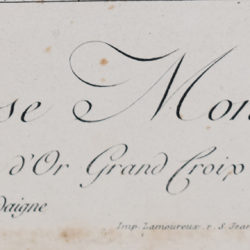 se Mon
d'Or Grand Croix
Daigne
Imp. Lamoureux r. S. Jean